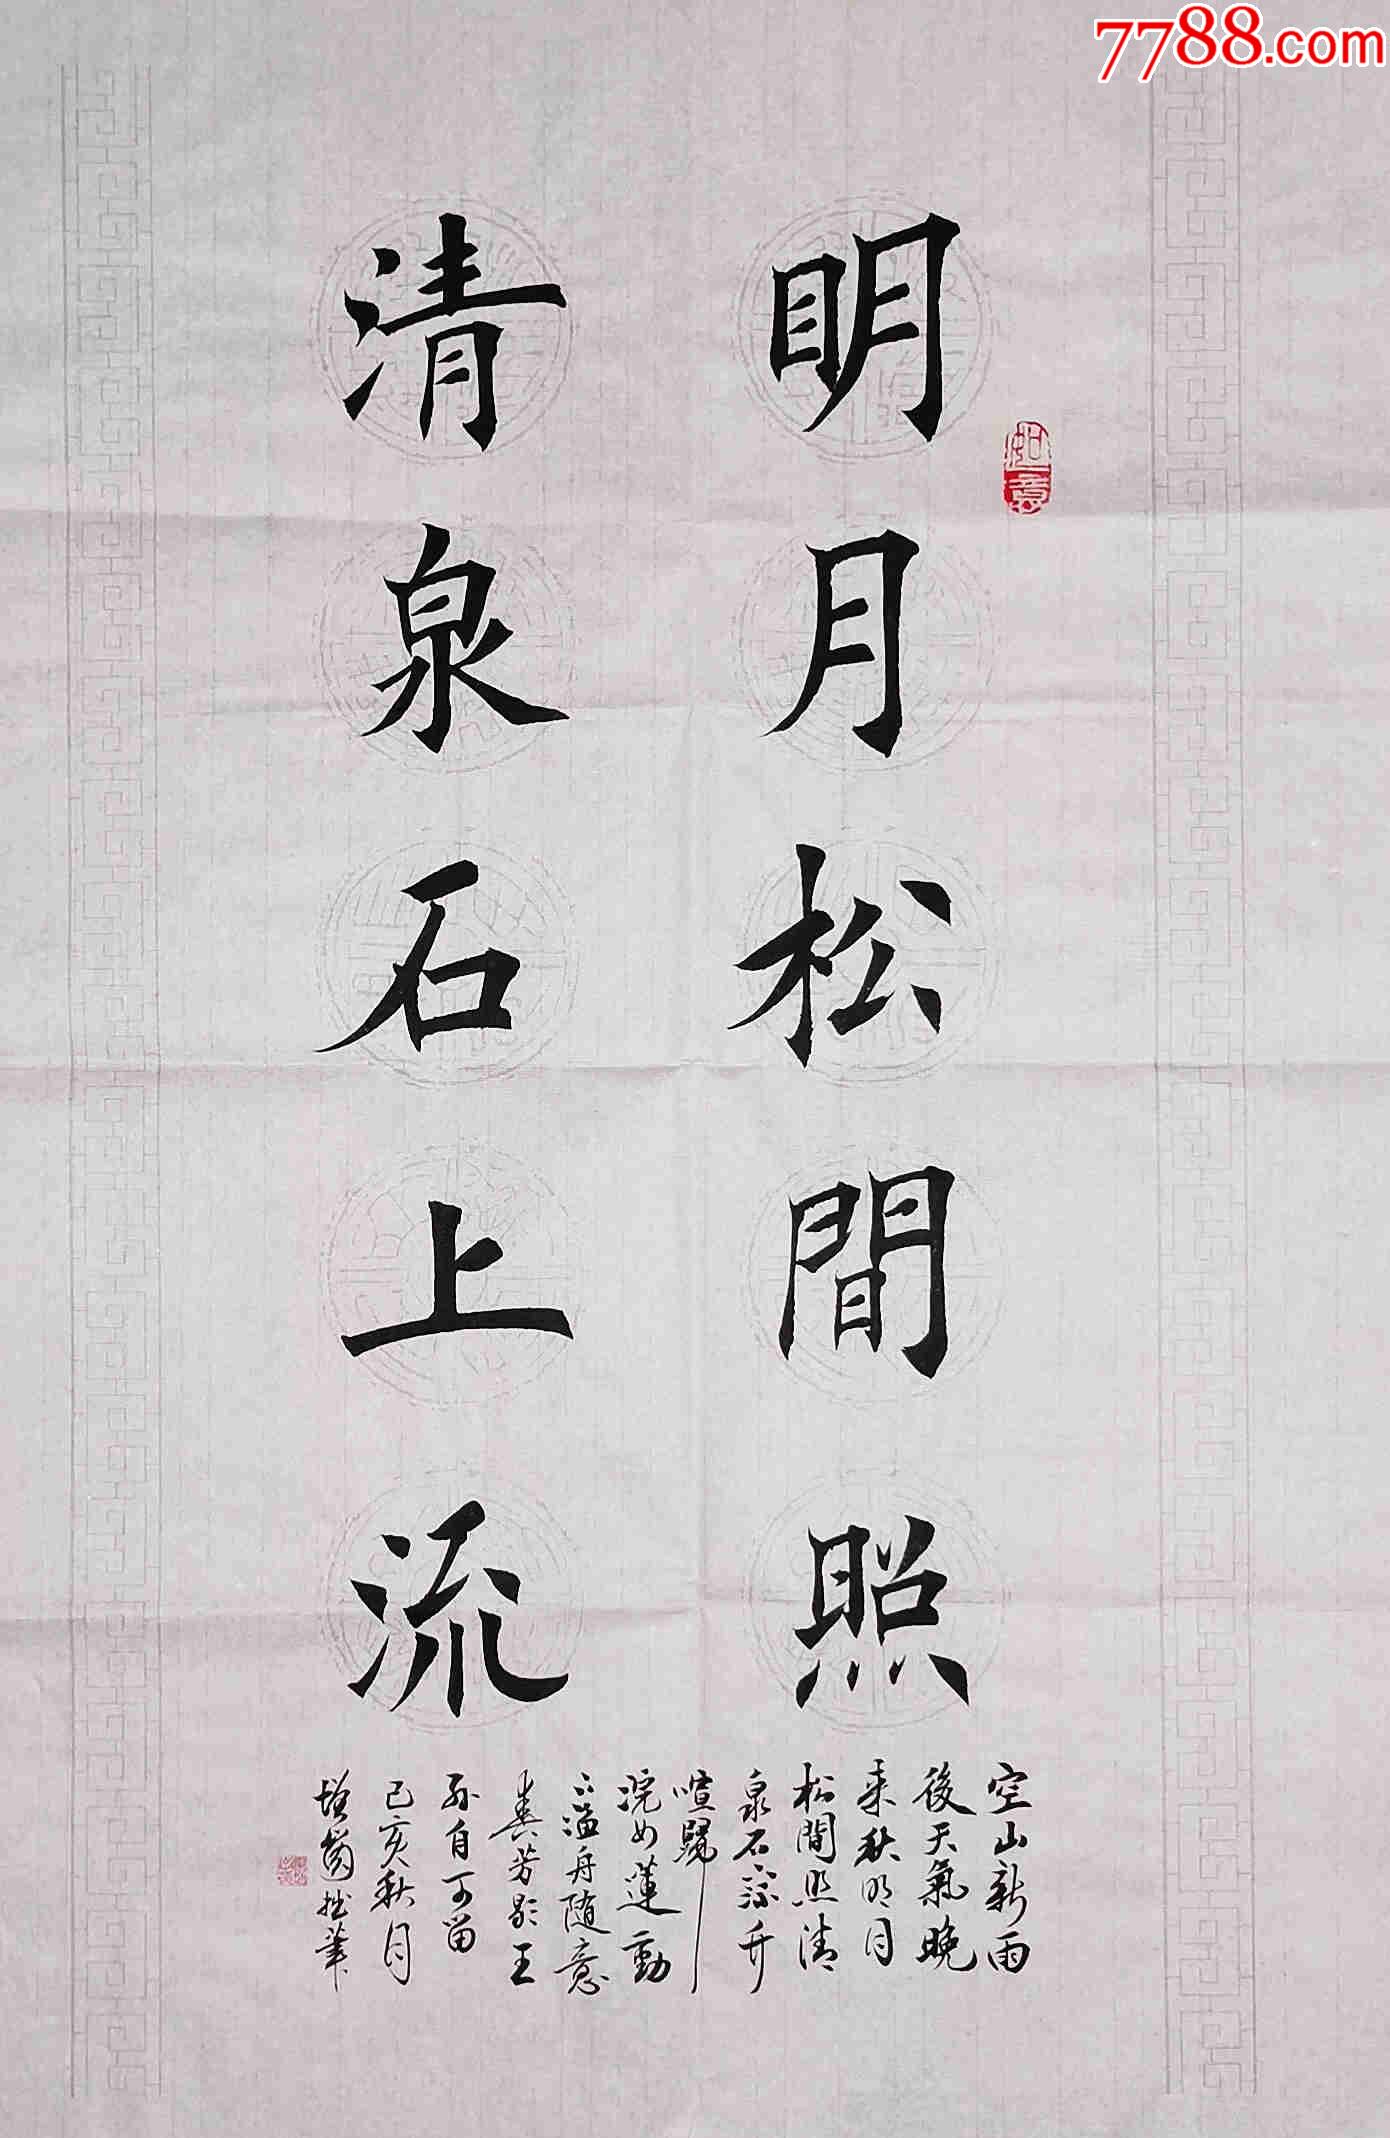 7788.com
明月松間照
如意
清泉石上流
空山新雨
後天氣晚
来秋明月
松間照清
泉石上流竹
喧歸
浣女蓮動
下漁舟隨意
春芳歇王
孫自可留
己亥秋月
拙筆